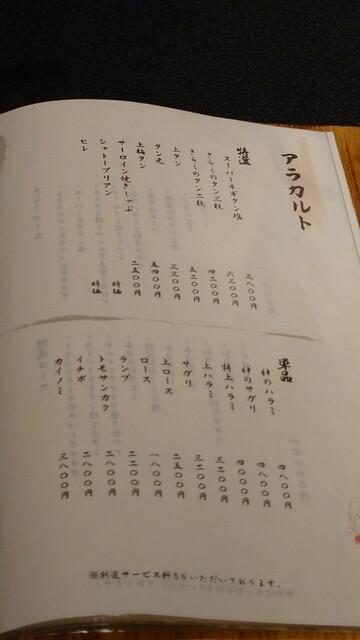 アラカルト
特選
スーパーネギタン塩 三八〇〇円
きらくのタン三段 六三〇〇円
きらくのタン二段 四二〇〇円
上タン 五二〇〇円
タン元 三三〇〇円
上極タン 五四〇〇円
サーロイン焼きしゃぶ 二五〇〇円
シャトーブリアン 時価
ヒレ 時価
単品
神のハラミ 四八〇〇円
神のサグリ 四八〇〇円
特上ハラミ 四〇〇〇円
上ハラミ 三二〇〇円
サグリ 三二〇〇円
上ロース 二五〇〇円
ロース 一八〇〇円
ランプ 二二〇〇円
トモサンカク 二八〇〇円
イチボ 二八〇〇円
カイノミ 三八〇〇円
※別途サービス料5%いただいております。